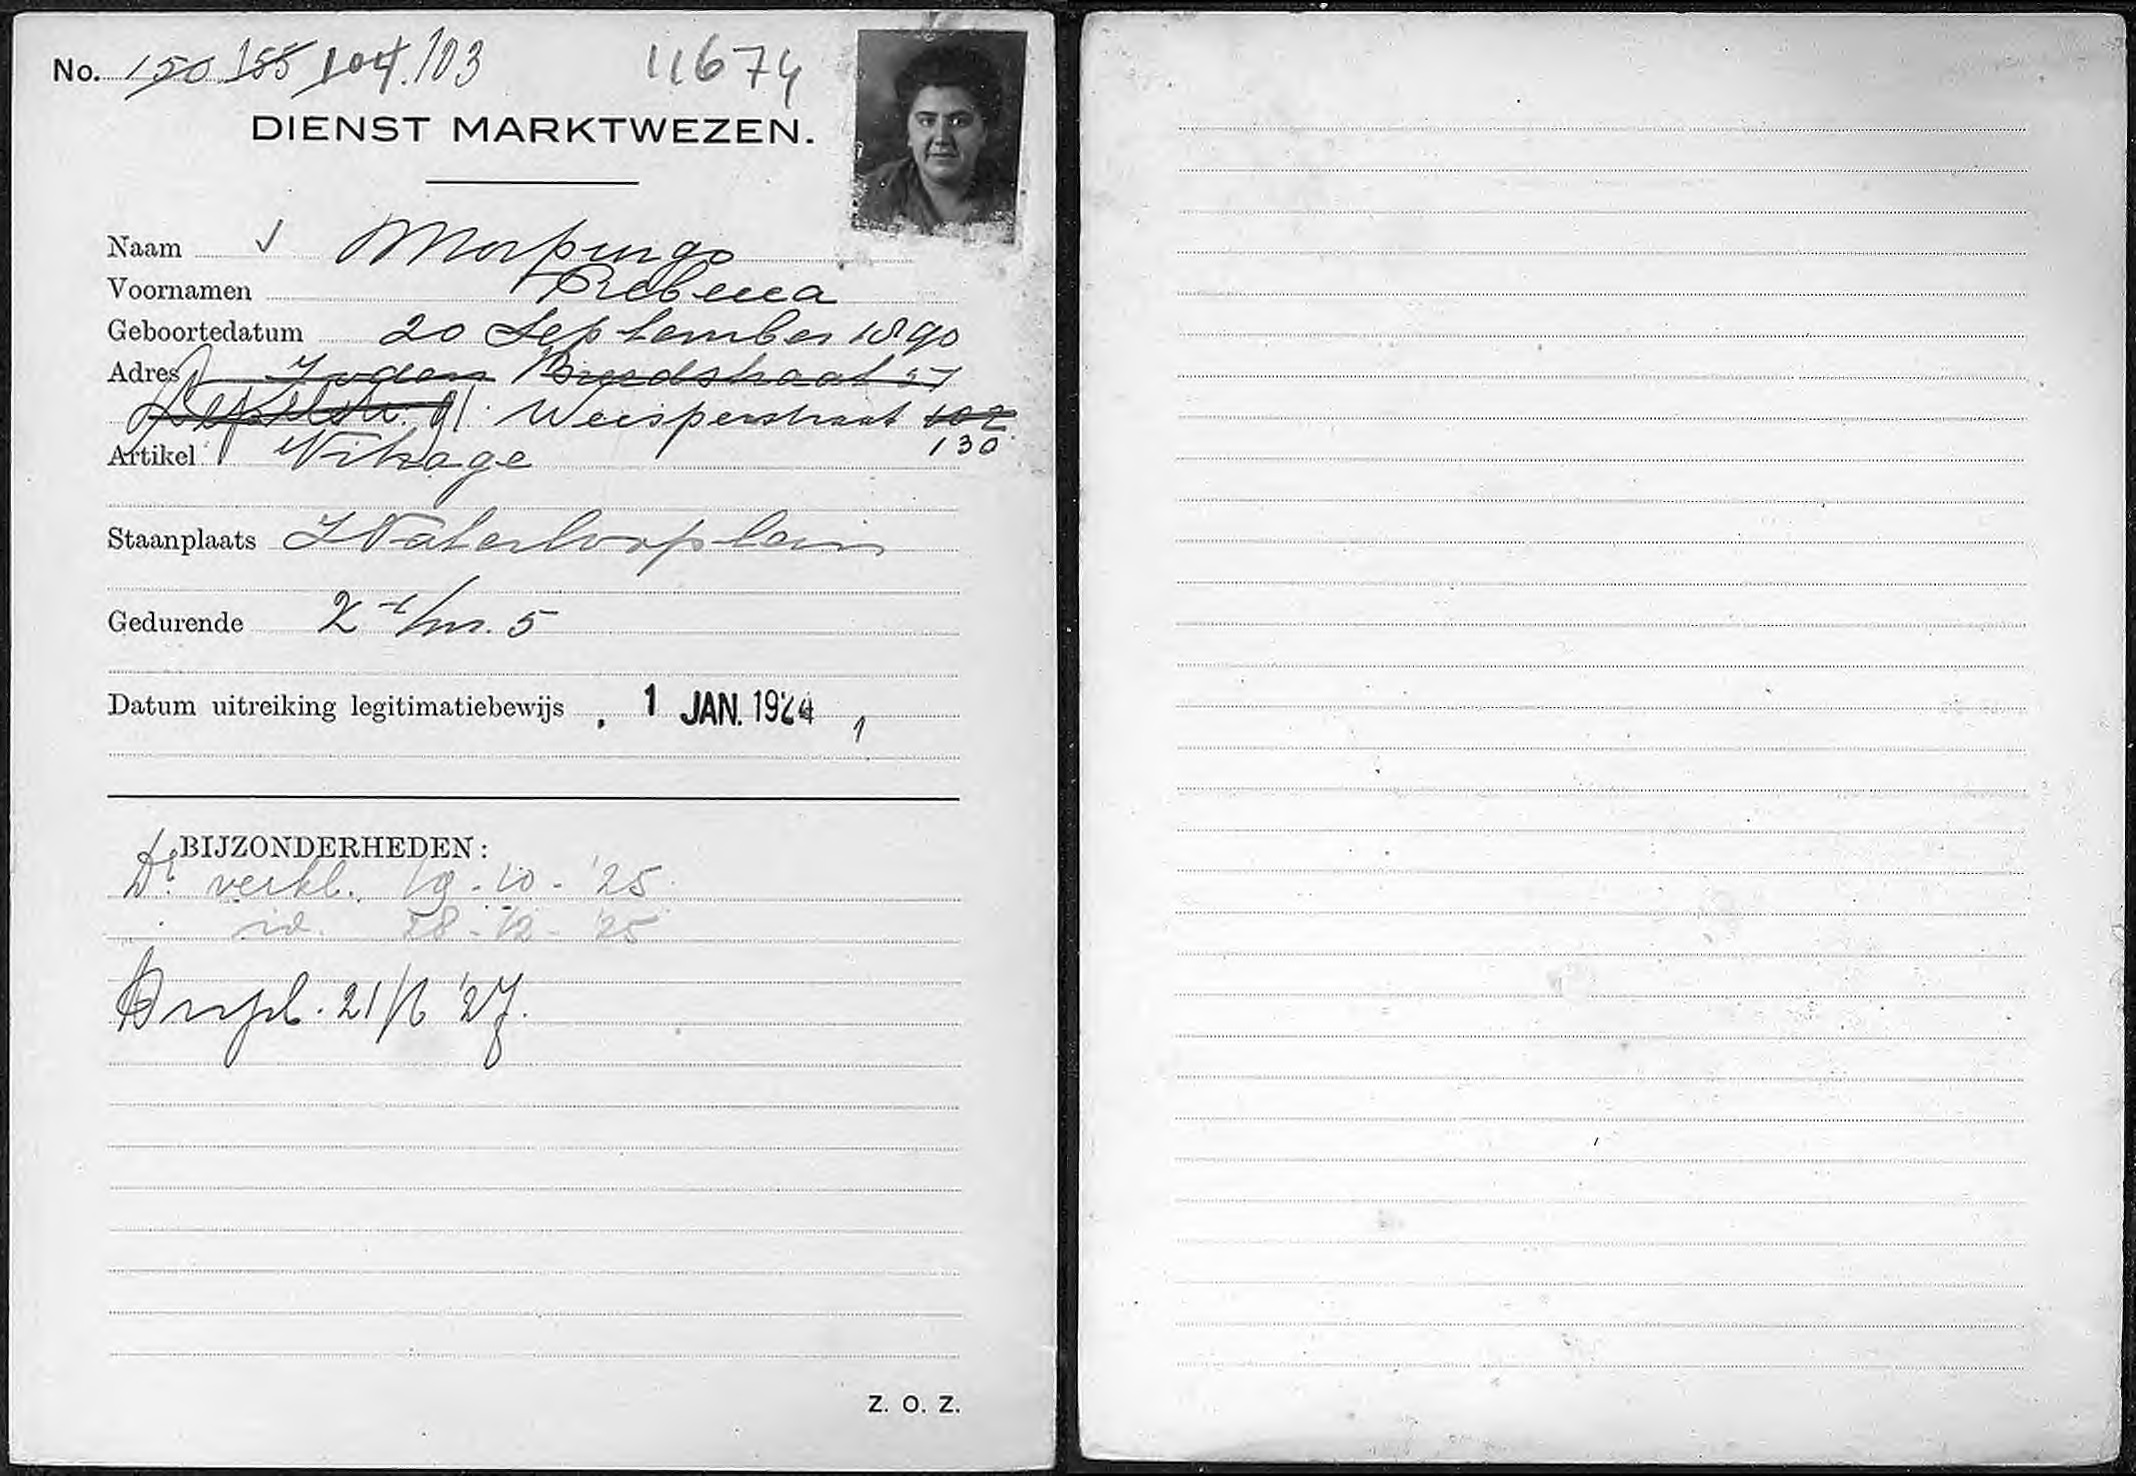 No. 150 155 104. 103 11674
DIENST MARKTWEZEN.
Naam Morpurgo
Voornamen Rebecca
Geboortedatum 20 September 1890
Adres Joden Breedstraat 57
Weesperstraat 102
130
Artikel Vitrage
Staanplaats Waterlooplein
Gedurende 2 t/m. 5
Datum uitreiking legitimatiebewijs 1 JAN. 1924
BIJZONDERHEDEN:
Dr. verkl. 19-10-'25
id. 28-12-'25
21/6 '27.
Z. O. Z.